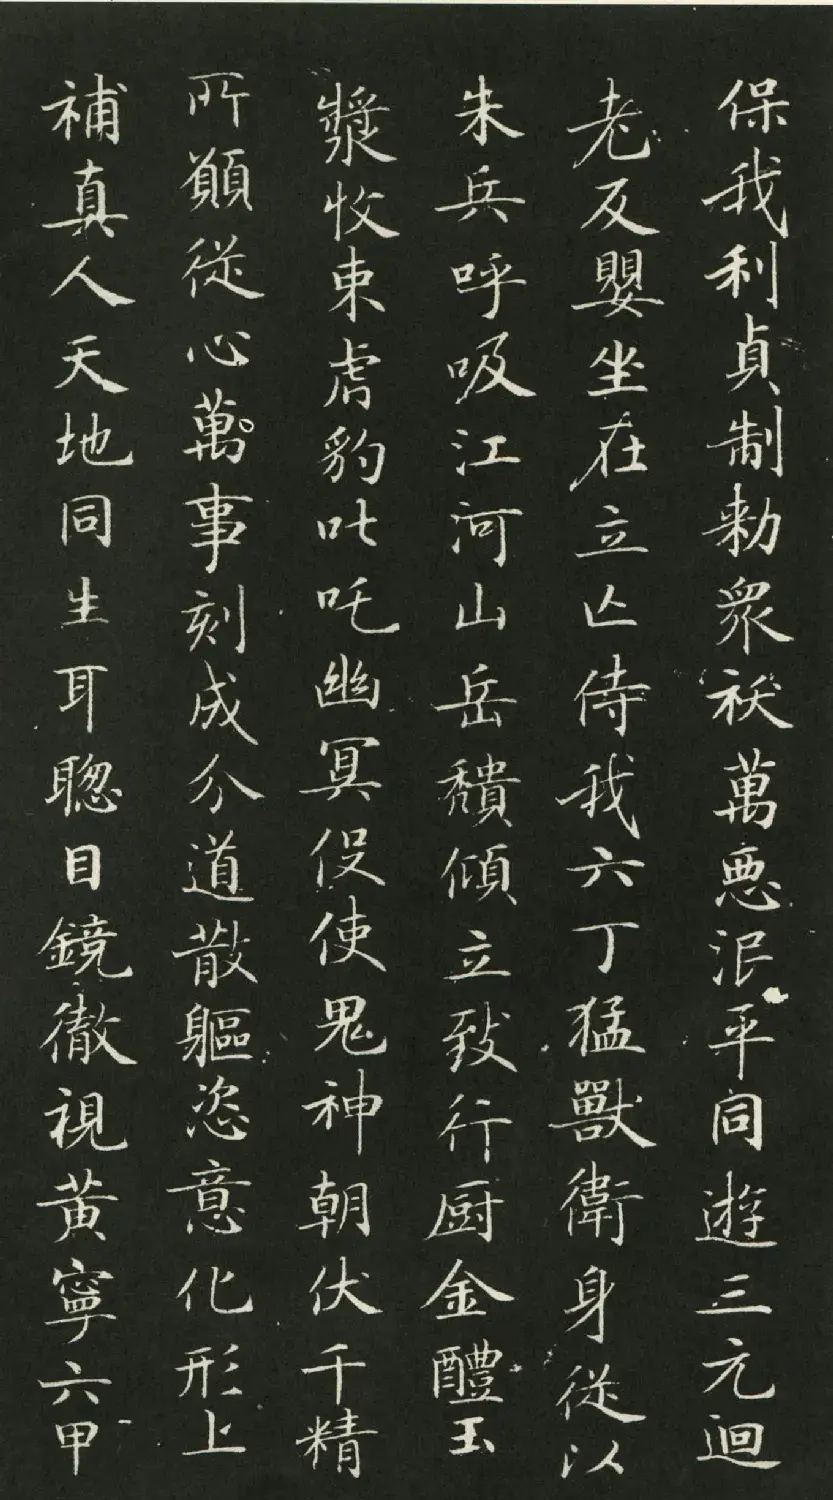 保我利貞制勑衆祅萬惡泯平同遊三元迴
老反嬰坐在立亾侍我六丁猛獸衛身從以
朱兵呼吸江河山岳穨傾立致行厨金醴玉
漿收束虎豹叱吒幽冥役使鬼神朝伏千精
所願從心萬事剋成分道散軀恣意化形上
補真人天地同生耳聦目鏡徹視黄寧六甲